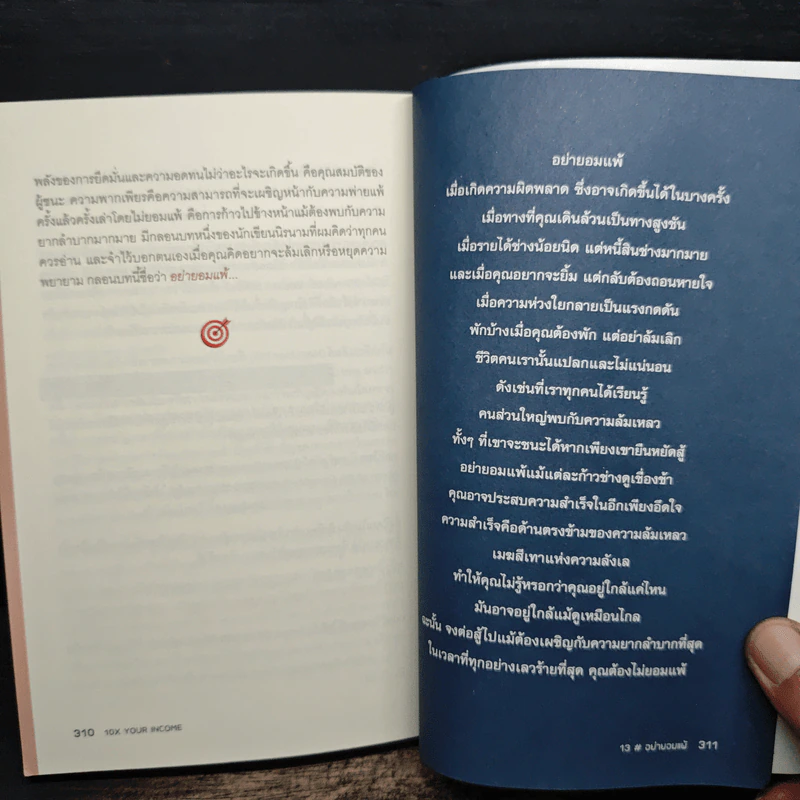 พลังของการยึดมั่นและความอดทนไม่ว่าอะไรจะเกิดขึ้น คือคุณสมบัติของ
ผู้ชนะ ความพากเพียรคือความสามารถที่จะเผชิญหน้ากับความพ่ายแพ้
ครั้งแล้วครั้งเล่าโดยไม่ยอมแพ้ คือการก้าวไปข้างหน้าแม้ต้องพบกับความ
ยากลำบากมากมาย มีกลอนบทหนึ่งของนักเขียนนิรนามที่ผมคิดว่าทุกคน
ควรอ่าน และจำไว้บอกตนเองเมื่อคุณคิดอยากจะล้มเลิกหรือหยุดความ
พยายาม กลอนบทนี้ชื่อว่า อย่ายอมแพ้...
310 10X YOUR INCOME
อย่ายอมแพ้
เมื่อเกิดความผิดพลาด ซึ่งอาจเกิดขึ้นได้ในบางครั้ง
เมื่อทางที่คุณเดินล้วนเป็นทางสูงชัน
เมื่อรายได้ช่างน้อยนิด แต่หนี้สินช่างมากมาย
และเมื่อคุณอยากจะยิ้ม แต่กลับต้องถอนหายใจ
เมื่อความห่วงใยกลายเป็นแรงกดดัน
พักบ้างเมื่อคุณต้องพัก แต่อย่าล้มเลิก
ชีวิตคนเรานั้นแปลกและไม่แน่นอน
ดังเช่นที่เราทุกคนได้เรียนรู้
คนส่วนใหญ่พบกับความล้มเหลว
ทั้งๆ ที่เขาจะชนะได้หากเพียงเขายืนหยัดสู้
อย่ายอมแพ้แม้แต่ละก้าวช่างดูเชื่องช้า
คุณอาจประสบความสำเร็จในอีกเพียงอึดใจ
ความสำเร็จคือด้านตรงข้ามของความล้มเหลว
เมฆสีเทาแห่งความลังเล
ทำให้คุณไม่รู้หรอกว่าคุณอยู่ใกล้แค่ไหน
มันอาจอยู่ใกล้แม้ดูเหมือนไกล
ฉะนั้น จงต่อสู้ไปแม้ต้องเผชิญกับความยากลำบากที่สุด
ในเวลาที่ทุกอย่างเลวร้ายที่สุด คุณต้องไม่ยอมแพ้
13 # อย่ายอมแพ้ 311